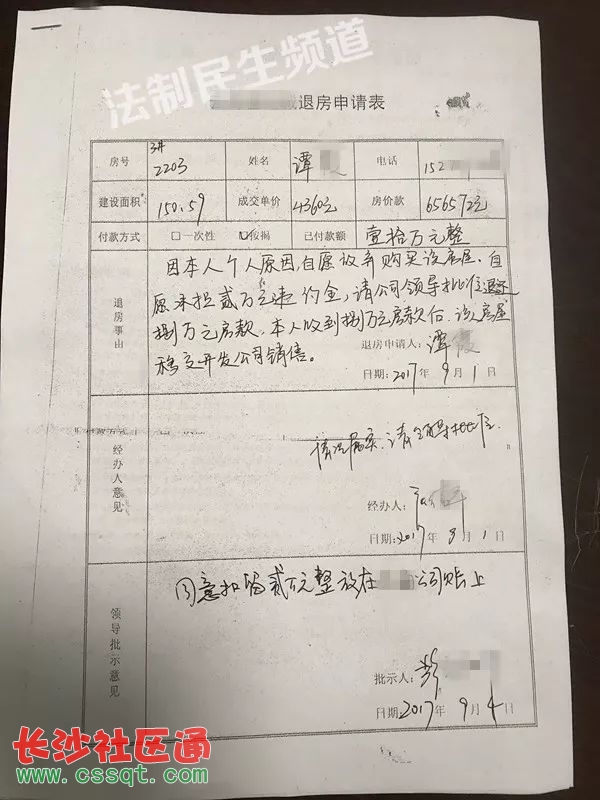 法制民生频道
退房申请表
房号 3井 2203 姓名 谭 电话 152
建设面积 150.59 成交单价 4360元 房价款 656572元
付款方式 □一次性 ☑按揭 已付款额 壹拾万元整
退房事由
因本人个人原因,自愿放弃购买该房屋。自
愿承担贰万元违约金,请公司领导批准退还
捌万元房款。本人收到捌万元房款后,该房屋
移交开发公司销售。
退房申请人: 谭
日期: 2017年9月1日
经办人意见
情况属实,请领导批准
经办人:
日期: 2017年9月1日
领导批示意见
同意扣留贰万元整放在 公司账上
批示人: 彭
日期: 2017年9月4日
长沙社区通
www.cssqt.com